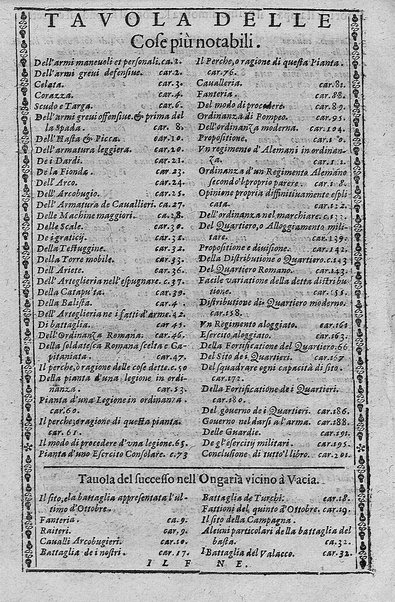 TAVOLA DELLE
Cose più notabili.
Dell'armi maneuoli et personali. ca.2.
Dell'armi greui defensiue. car.2.
Celata. car.3.
Corazza. car.4.
Scudo e Targa. car.6.
Dell'armi greui offensiue. & prima del
la Spada. car.8.
Dell'Hasta & Picca. car.10.
Dell'armatura leggiera. car.20.
De i Dardi. car.21.
De la Fionda. car.23.
Dell'Arco. car.24.
Dell'Arcobugio. car.25.
Dell'Armatura de Cauallieri. car.27.
Delle Machine maggiori. ca.28.
Delle Scale. car.30.
De i graticij. car.31.
Della Testuggine. car.32.
Della Torre mobile. car.33.
Dell'Ariete. car.36.
Dell'Arteglieria nell'espugnare. c.37.
Della Catapulta. car.39.
Della Balista. car.41.
Dell'Artiglieria ne i fatti d'arme. 42.
Di battaglia. car.45.
Dell'Ordinanza Romana. car.46.
Della soldatesca Romana scelta e Ca-
pitaniata. car.47.
Il perche, ò ragione delle cose dette. c.50
Della pianta d'una legione in ordi-
nanza. car.52.
Pianta d'una Legione in ordinanza
car.60.
Il perche, ò ragione di questa pianta.
car.61.
Il modo di procedere d'una legione. 65.
Pianta d'uno Esercito Consolare. c.73
Il Perche, ò ragione di questa Pianta.
car.76.
Caualleria. car.81.
Fanteria. car.88.
Del modo di procedere. car.89.
Ordinanza di Pompeo. car.95.
Dell'ordinanza moderna. car.104.
Propositione.
Vn regimento d'Alemani in ordinan-
za.
Ordinanza d'un Regimento Alemano
secondo'l proprio parere.
Opinione propria diffinitiuamente espli
cata. car.122.
Dell'ordinanza nel marchiare. c.133.
Del Quartiero, o Alloggiamento mili-
tare. car.139.
Propositione e diuisione. car.142.
Della Distributione o Quartiero. c.143
Del Quartiero Romano. car.143.
Facile variatione della detta distribu
tione. car.155.
Distributione di Quartiero moderno.
car.158.
Vn Regimento aloggiato. car.161
Esercito aloggiato. car.163.
Della Fortificatione del Quartiero. 66
Del Sito de i Quartieri. car.167
Del squadrare ogni capacità di sito.
car.172.
Della Fortificatione de i Quartieri.
car.180.
Del gouerno de i Quartieri. car.186.
Gouerno nel darsi a l'arma. car.188.
Delle Guardie. car.191.
De gl'eserciij militari. car.195.
Conclusione di tutto'l libro. car.201.
Tauola del successo nell Ongaria vicino à Vacia.
Il sito, e la battaglia appresentata l'ul
timo d'Ottobre.
Fanteria. ca.9.
Raitori. car.9.
Caualli Arcobugieri. car.
Battaglia de i nostri. car.17.
Battaglia de Turchi. car.18.
Fattioni del quinto d'Ottobre. car.19.
Il sito della Campagna.
Alcuni particolari della battaglia del
basta. car.32.
Battaglia del Valacco. car.32.
IL FNE.